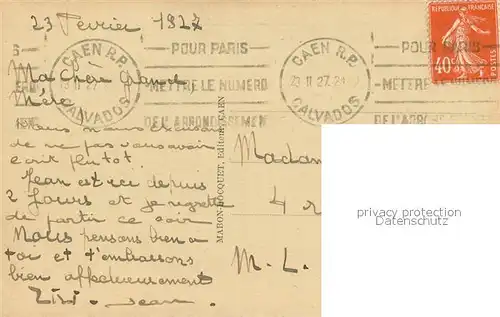 23 Fevrier 1927
CAEN R.P.
23 II 27
CALVADOS
POUR PARIS
METTRE LE NUMERO
DE L'ARRONDISSEMEN
CAEN R.P.
23 II 27. 21
CALVADOS
POUR PARIS
METTRE LE NUMERO
DE L'ARRO
REPUBLIQUE FRANÇAISE
40c
POSTES
Ma Chère Grand
Mére
Nous nous excusons
de ne pas vous avoir
écrit plutot.
Jean est ici depuis
2 Jours et je regrette
de partir ce soir
Nous pensons bien a
toi et t'embrassons
bien affectueusement
Zizi. Jean.
MARON-BOCQUET, Editeur, CAEN
Madam
4 r
M. L.
privacy protection
Datenschutz